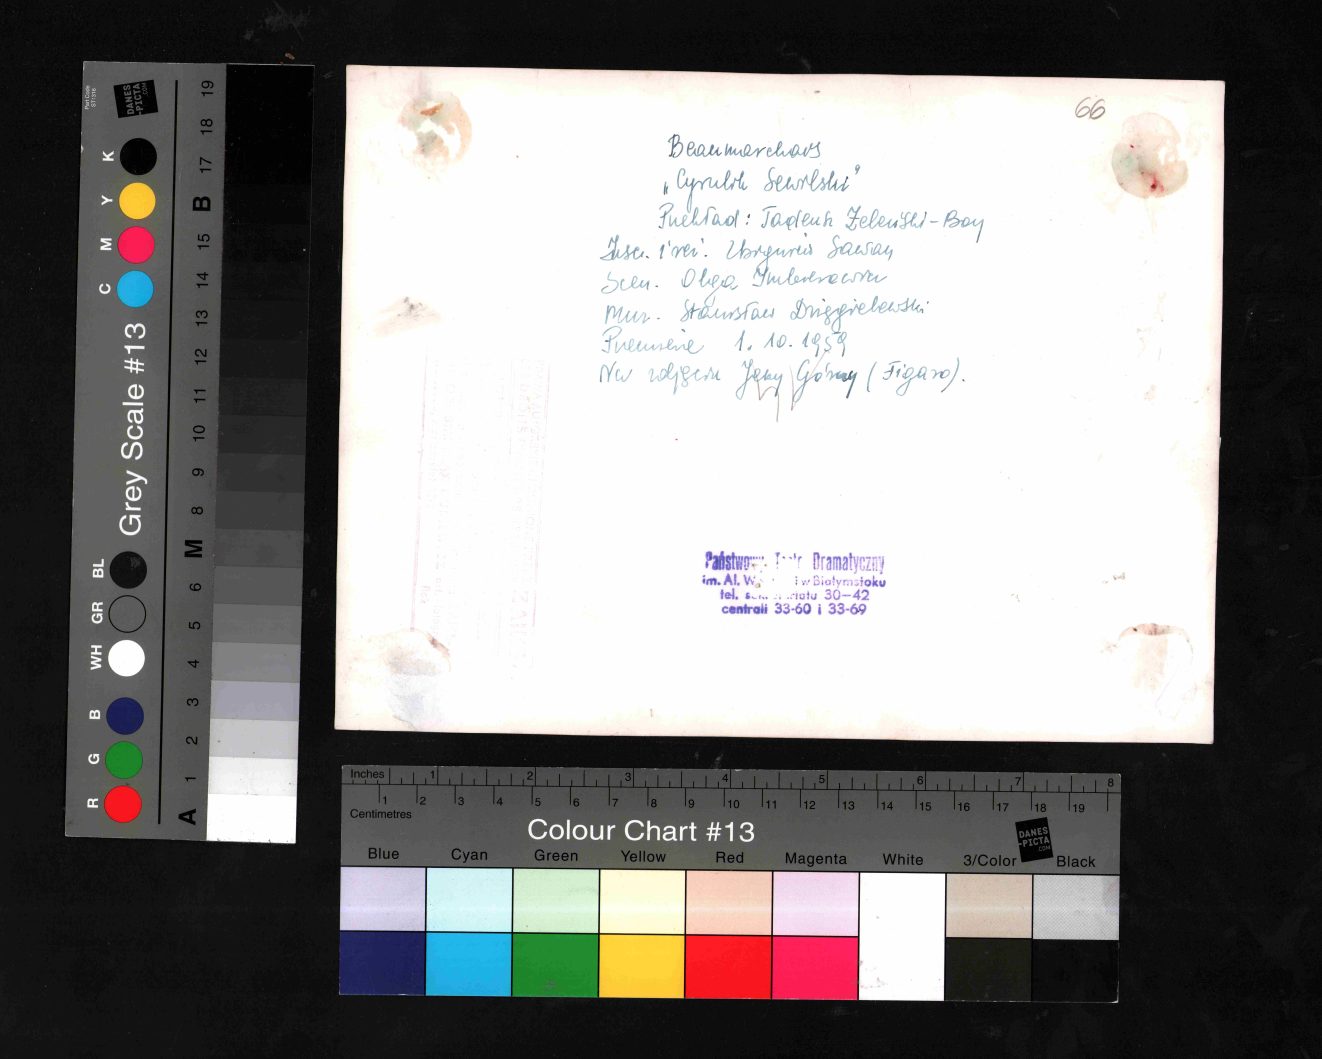 66
Beaumarchais
„Cyrulik Sewilski”
Przekład: Tadeusz Żeleński-Boy
Insc. i reż. Zbigniew Sawan
Scen. Olga
Muz. Stanisław
Premiera 1. 10. 1959
Na zdjęciu Jerzy Górny (Figaro).
Państwowy Teatr Dramatyczny
im. Al. W w Białymstoku
tel. sekretariatu 30—42
centrali 33-60 i 33-69
Part Code
ST-316
DANES
-PICTA
.COM
K
Y
M
C
Grey Scale #13
BL
GR
WH
B
G
R
19
18
17
B
15
14
13
12
11
10
9
8
M
6
5
4
3
2
1
A
Inches 1 2 3 4 5 6 7 8
1 2 3 4 5 6 7 8 9 10 11 12 13 14 15 16 17 18 19
Centimetres
Colour Chart #13
DANES
-PICTA
.COM
Blue Cyan Green Yellow Red Magenta White 3/Color Black